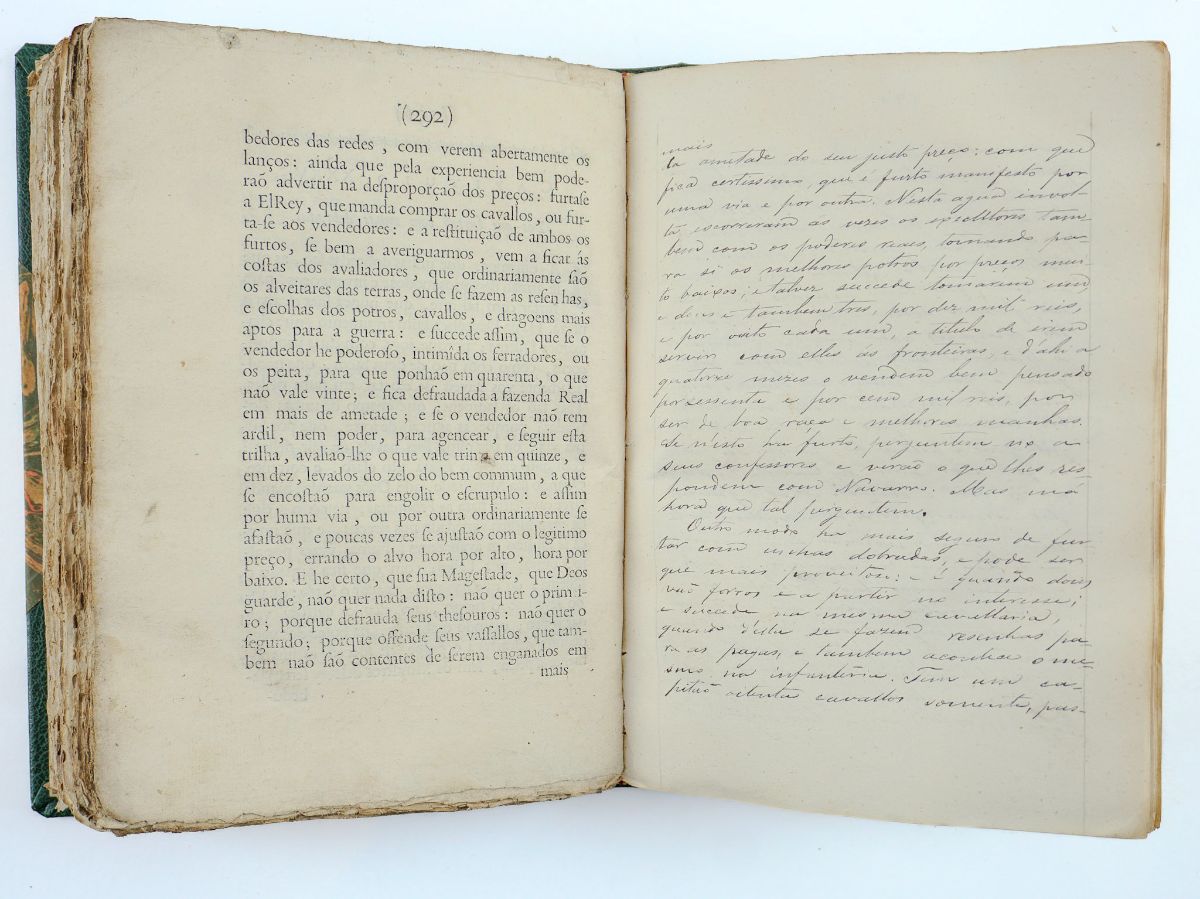 (292)
bedores das redes , com verem abertamente os
lanços : ainda que pela experiencia bem pode-
raõ advertir na deſproporçaõ dos preços : furtaſe
a ElRey, que manda comprar os cavallos, ou fur-
ta-ſe aos vendedores : e a reſtituiçaõ de ambos os
furtos, ſe bem a averiguarmos, vem a ficar ás
coſtas dos avaliadores , que ordinariamente ſaõ
os alveitares das terras, onde ſe fazem as reſenhas,
e eſcolhas dos potros, cavallos, e dragoens mais
aptos para a guerra : e ſuccede aſſim, que ſe o
vendedor he poderoſo, intimída os ferradores, ou
os peita, para que ponhaõ em quarenta, o que
naõ vale vinte; e fica defraudada a fazenda Real
em mais de ametade; e ſe o vendedor naõ tem
ardil, nem poder, para agencear, e ſeguir eſta
trilha, avaliaõ-lhe o que vale trinta em quinze, e
em dez, levados do zelo do bem commum, a que
ſe encoſtaõ para engolir o eſcrupulo : e aſſim
por huma via, ou por outra ordinariamente ſe
afaſtaõ, e poucas vezes ſe ajuſtaõ com o legitimo
preço, errando o alvo hora por alto, hora por
baixo. E he certo, que ſua Mageſtade, que Deos
guarde, naõ quer nada diſto : naõ quer o primei-
ro; porque defrauda ſeus theſouros : naõ quer o
ſegundo; porque offende ſeus vaſſallos, que tam-
bem naõ ſaõ contentes de ſerem enganados em
mais
mais
da ametade do seu justo preço: com que
fica certissimo, que é furto manifesto por
uma via e por outra. Nesta agua invol-
ta, escorreram as vezes os executores tam-
bem com os poderes reaes, tomando pa-
ra si os melhores potros por preços mui-
to baixos; e talvez succede tomarem um
e dous e tambem tres, por dez mil reis,
e por oito cada um, a titulo de irem
servir com elles ás fronteiras, e d'ahi a
quatorze mezes o vendem bem pensado
por sessenta e por cem mil reis, por
ser de boa raça e melhores manhas.
Se n'isto ha furto, perguntem no a
seus confessores e verão o que lhes res-
pondem com Navarro. Mas má
hora que tal perguntem.
Outro modo ha mais seguro de fur-
tar com unhas dobradas, e pode ser
que mais proveitoso: e é quando dous
vão forros e a partir no interesse;
e succede na mesma cavallaria,
quando d'ella se fazem resenhas pa-
ra as pagas, e tambem acontece o me-
smo na infanteria. Tem um ca-
pitão oitenta cavallos somente, pas-